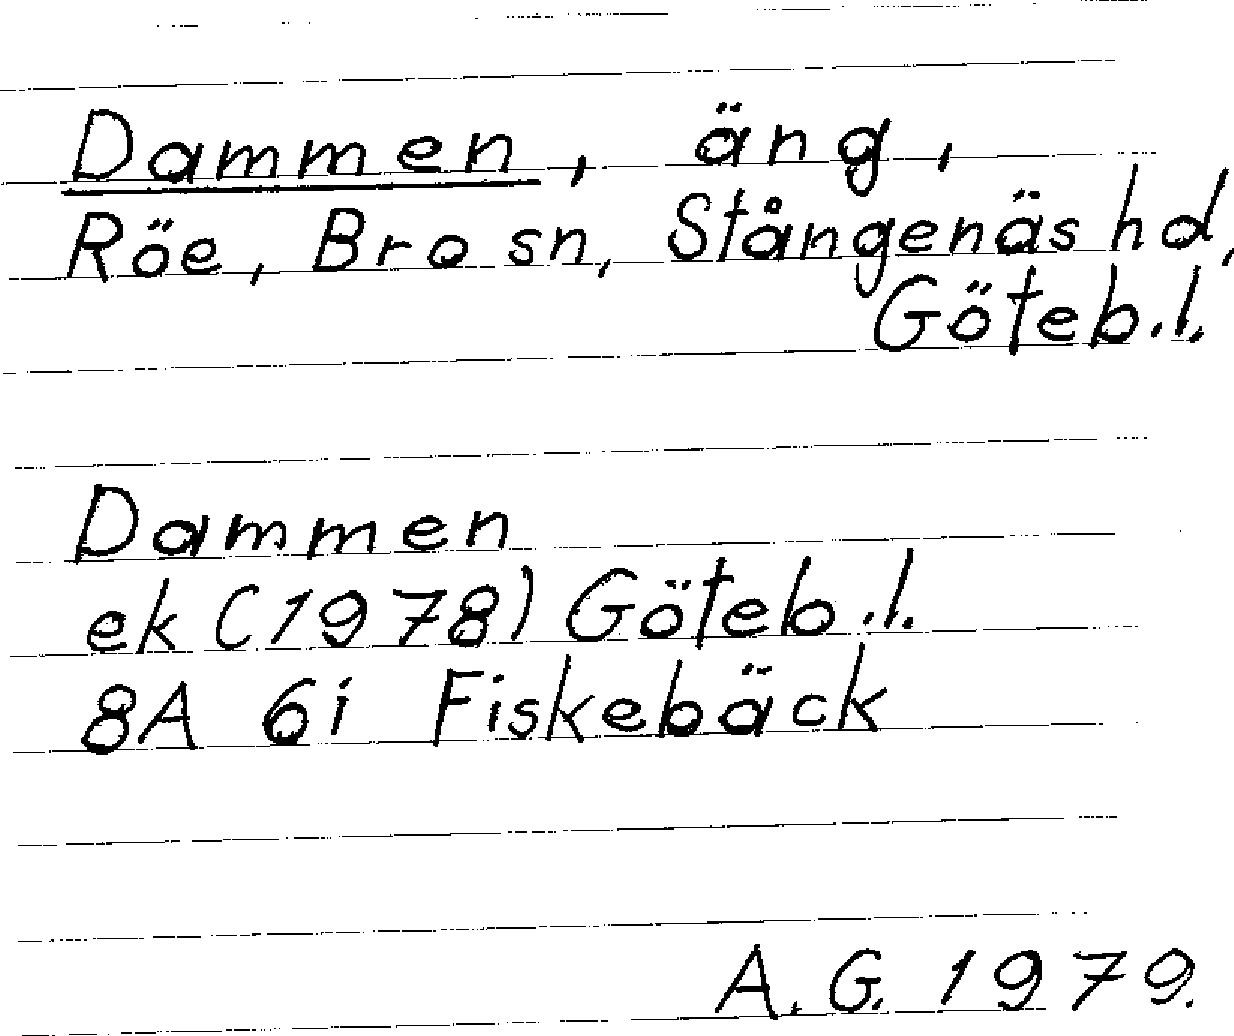 Dammen, äng,
Röe, Bro sn, Stångenäs hd,
Göteb.l.
Dammen
ek (1978) Göteb.l.
8A 6i Fiskebäck
A.G. 1979.